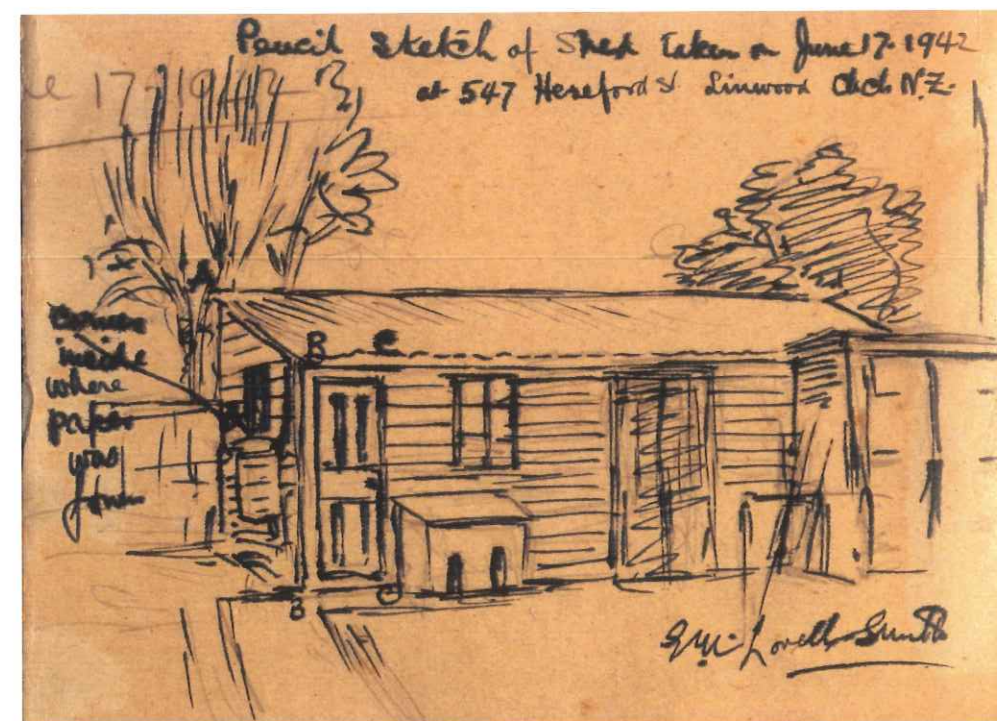 Pencil sketch of Shed taken on June 17. 1942
at 547 Hereford St Linwood Chch N.Z.
17 - 1942
A
B C
Corner
inside
where
paper
was
found
B C
Lovell-Smith